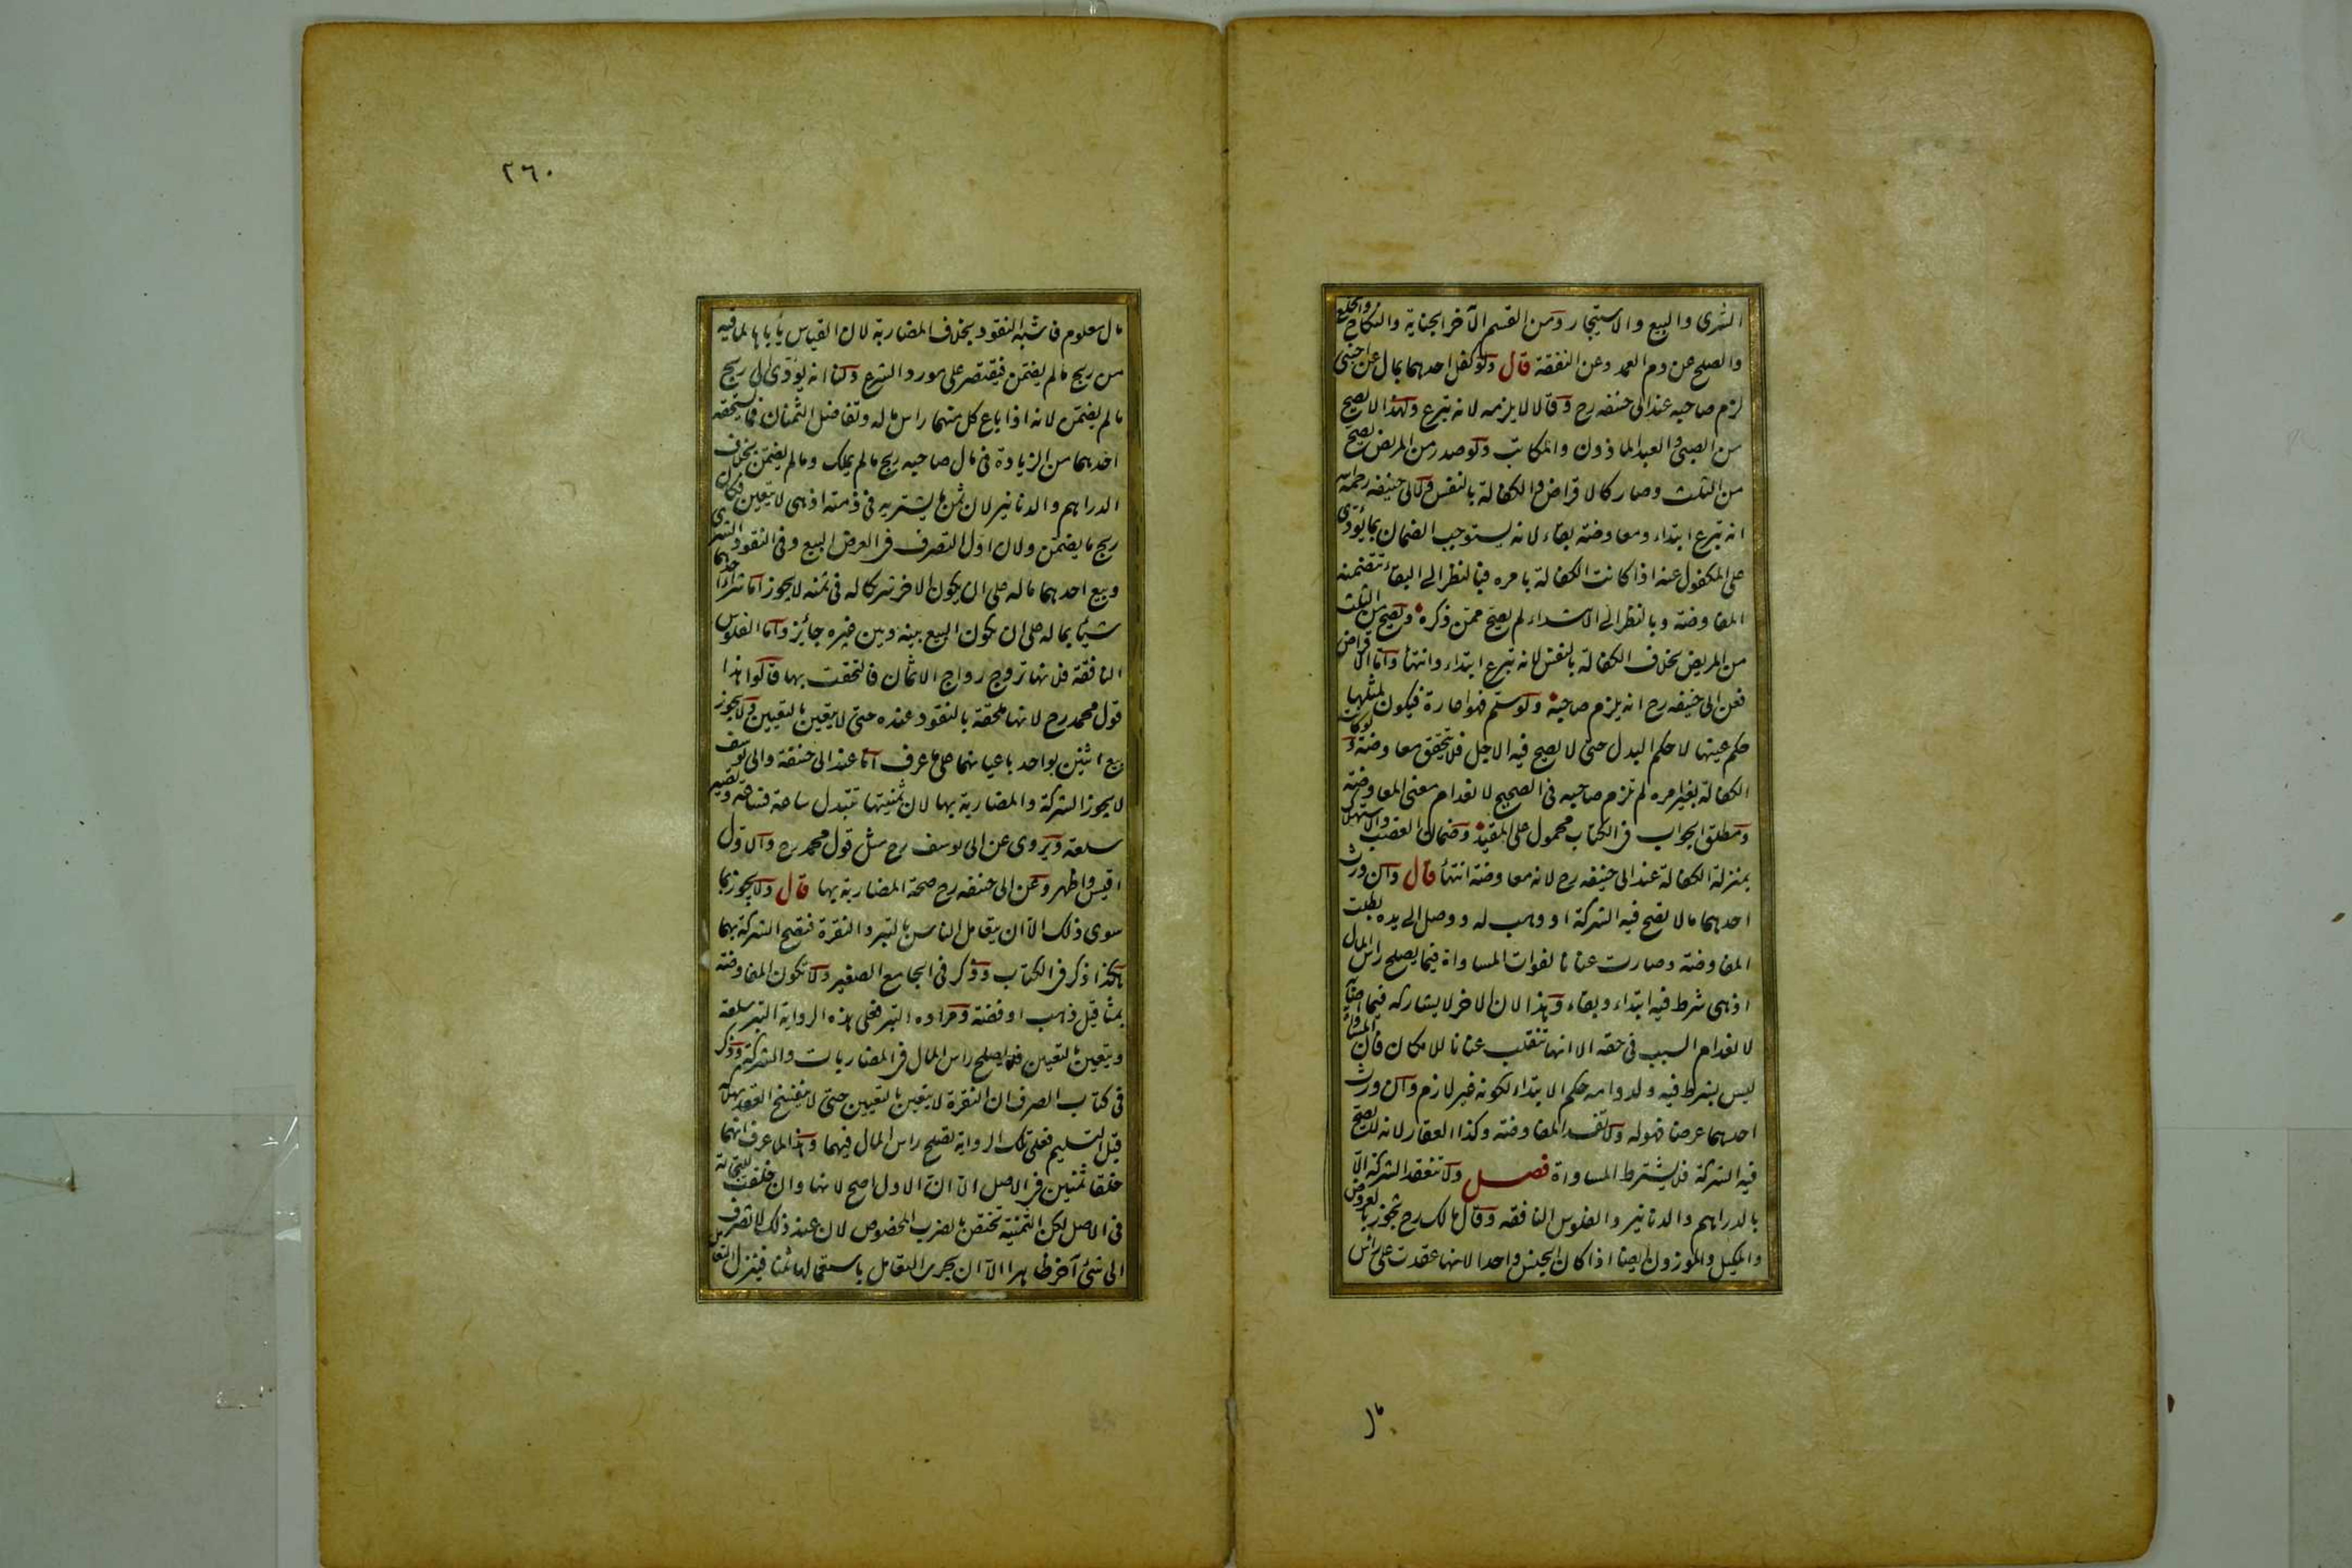 الشرى والبيع والاستيجار ومن القسم الآخر الجناية والنكاح والخلع
والصلح عن دم العمد وعن النفقة قال ولو كفل احدهما بمال عن اجنبى
لزم صاحبه عند ابى حنيفه رح وقالا لا يلزمه لانه تبرع ولهذا لا يصح
من الصبى والعبد الماذون والمكاتب ولو صدر من المريض يصح
من الثلث وصار كالاقراض والكفالة بالنفس ولابى حنيفه رحمه الله
انه تبرع ابتداء ومعاوضة بقاء لانه يستوجب الضمان بما يؤدى
على المكفول عنه اذا كانت الكفالة بامره فبالنظر الى البقاء تتضمنه
المفاوضة وبالنظر الى الابتداء لم يصح ممن ذكره ويصح من الثلث
من المريض بخلاف الكفالة بالنفس لانه تبرع ابتداء وانتهاء واما الاقراض
فعن ابى حنيفه رح انه يلزم صاحبه ولو سلم فهو اعارة فيكون لمثلها
حكم عينها لا حكم البدل حتى لا يصح فيه الاجل فلا يتحقق معاوضة ولو كانت
الكفالة بغير امره لم تلزم صاحبه فى الصحيح لانعدام معنى المعاوضة
ومطلق الجواب فى الكتاب محمول على المقيد وضمان الغصب والاستهلاك
بمنزلة الكفالة عند ابى حنيفه رح لانه معاوضة انتهاء قال وان ورث
احدهما مالا تصح فيه الشركة او وهب له ووصل الى يده بطلت
المفاوضة وصارت عنانا لفوات المساواة فيما يصلح راس المال
اذ هى شرط فيه ابتداء وبقاء وهذا لان الاخر لا يشاركه فيما اصابه
لانعدام السبب فى حقه الا انها تنقلب عنانا للامكان فان المساواة
ليس بشرط فيه ولدوامه حكم الابتداء لكونه غير لازم وان ورث
احدهما عرضا فهو له ولا تفسد المفاوضة وكذا العقار لانه لا يصح
فيه الشركة فلا يشترط المساواة فصل ولا تنعقد الشركة الا
بالدراهم والدنانير والفلوس النافقه وقال مالك رح تجوز بالعروض
والمكيل والموزون ايضا اذا كان الجنس واحدا لانها عقدت على راس
مال
٢٦٠
مال معلوم فاشبه النقود بخلاف المضاربة لان القياس ياباها لما فيه
من ربح مالم يضمن فيقتصر على مورد الشرع ولنا انه يؤدى الى ربح
مالم يضمن لانه اذا باع كل منهما راس ماله وتفاضل الثمنان فما يستحقه
احدهما من الزيادة فى مال صاحبه ربح مالم يملك ومالم يضمن بخلاف
الدراهم والدنانير لان ثمن ما يشتريه فى ذمته اذ هى لا يتعين فكان
ربح ما يضمن ولان اول التصرف فى العرض البيع وفى النقود الشرى
وبيع احدهما ماله على ان يكون الاخر شريكا له فى ثمنه لا يجوز اما شراء احدهما
شيئا بماله على ان يكون المبيع بينه وبين غيره جائز واما الفلوس
النافقة فلانها تروج رواج الاثمان فالتحقت بها قالوا هذا
قول محمد رح لانها ملحقة بالنقود عنده حتى لا يتعين بالتعيين ولا يجوز
بيع اثنين بواحد باعيانهما على ما عرف اما عند ابى حنيفة وابى يوسف
لا يجوز الشركة والمضاربة بها لان ثمنيتها تتبدل ساعة فساعة وتصير
سلعة ويروى عن ابى يوسف رح مثل قول محمد رح والاول
اقيس واظهر وعن ابى حنيفه رح صحة المضاربة بها قال ولا يجوز بما
سوى ذلك الا ان يتعامل الناس بالتبر والنقرة فتصح الشركة بهما
هكذا ذكر فى الكتاب وذكر فى الجامع الصغير ولا تكون المفاوضة
بمثاقيل ذهب او فضة ومراده التبر فعلى هذه الرواية التبر سلعة
ويتعين بالتعيين فلا يصلح راس المال فى المضاربات والشركة وذكر
فى كتاب الصرف ان النقرة لا يتعين بالتعيين حتى لا ينفسخ العقد بهلاكه
قبل التسليم فعلى تلك الرواية تصلح راس المال فيهما وهذا لما عرف انهما
خلقا ثمنين فى الاصل الا ان الاول اصح لانها وان خلقت للتجارة
فى الاصل لكن الثمنية تختص بالضرب المخصوص لان عند ذلك لا تصرف
الى شئ آخر ظاهرا الا ان يجرى التعامل باستعمالهما ثمنا فينزل التعامل